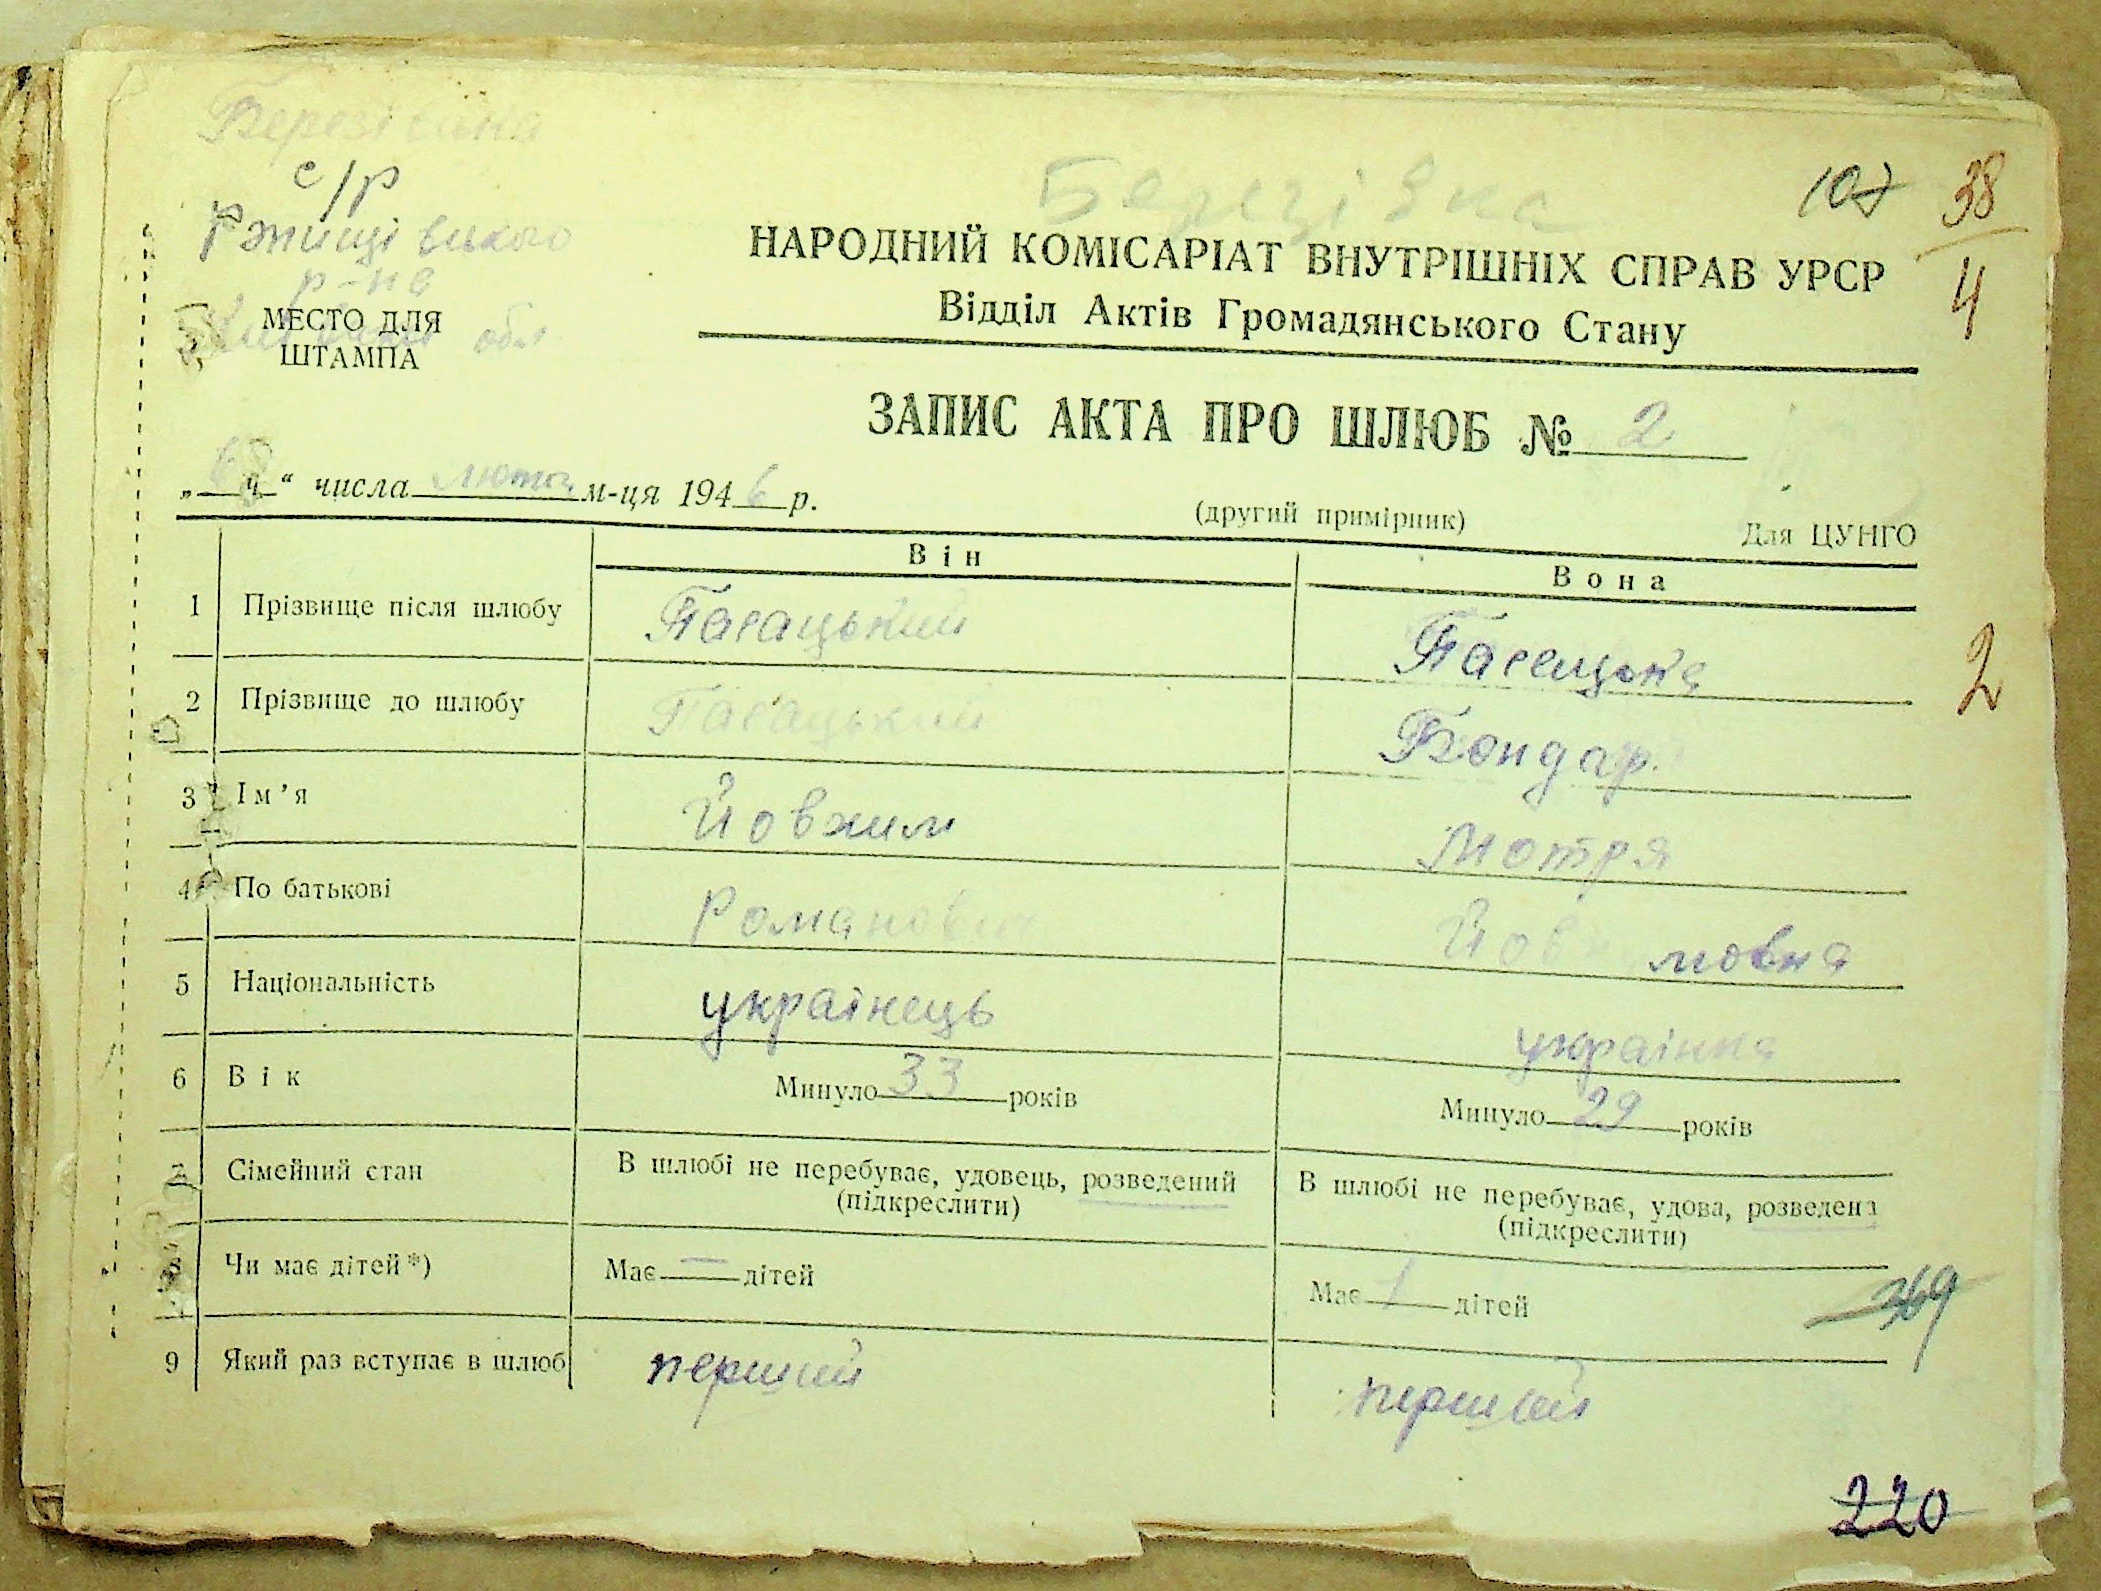 Березівка
с/р
Ржищівського
р-на
обл
МЕСТО ДЛЯ
ШТАМПА
Березівка
107
38
4
НАРОДНИЙ КОМІСАРІАТ ВНУТРІШНІХ СПРАВ УРСР
Відділ Актів Громадянського Стану
ЗАПИС АКТА ПРО ШЛЮБ № 2
„ “ числа лютого м-ця 1946 р.
(другий примірник)
Для ЦУНГО
Він
Вона
1 Прізвище після шлюбу Пасацький Пасецька
2 Прізвище до шлюбу Пасацький Бондар.
2
3 Ім’я Йовхим Мотря
4 По батькові Романович Йовхимовна
5 Національність українець українка
6 Вік Минуло 33 років Минуло 29 років
7 Сімейний стан В шлюбі не перебуває, удовець, розведений В шлюбі не перебуває, удова, розведена
(підкреслити) (підкреслити)
8 Чи має дітей*) Має — дітей Має 1 дітей
369
9 Який раз вступає в шлюб перший перший
220